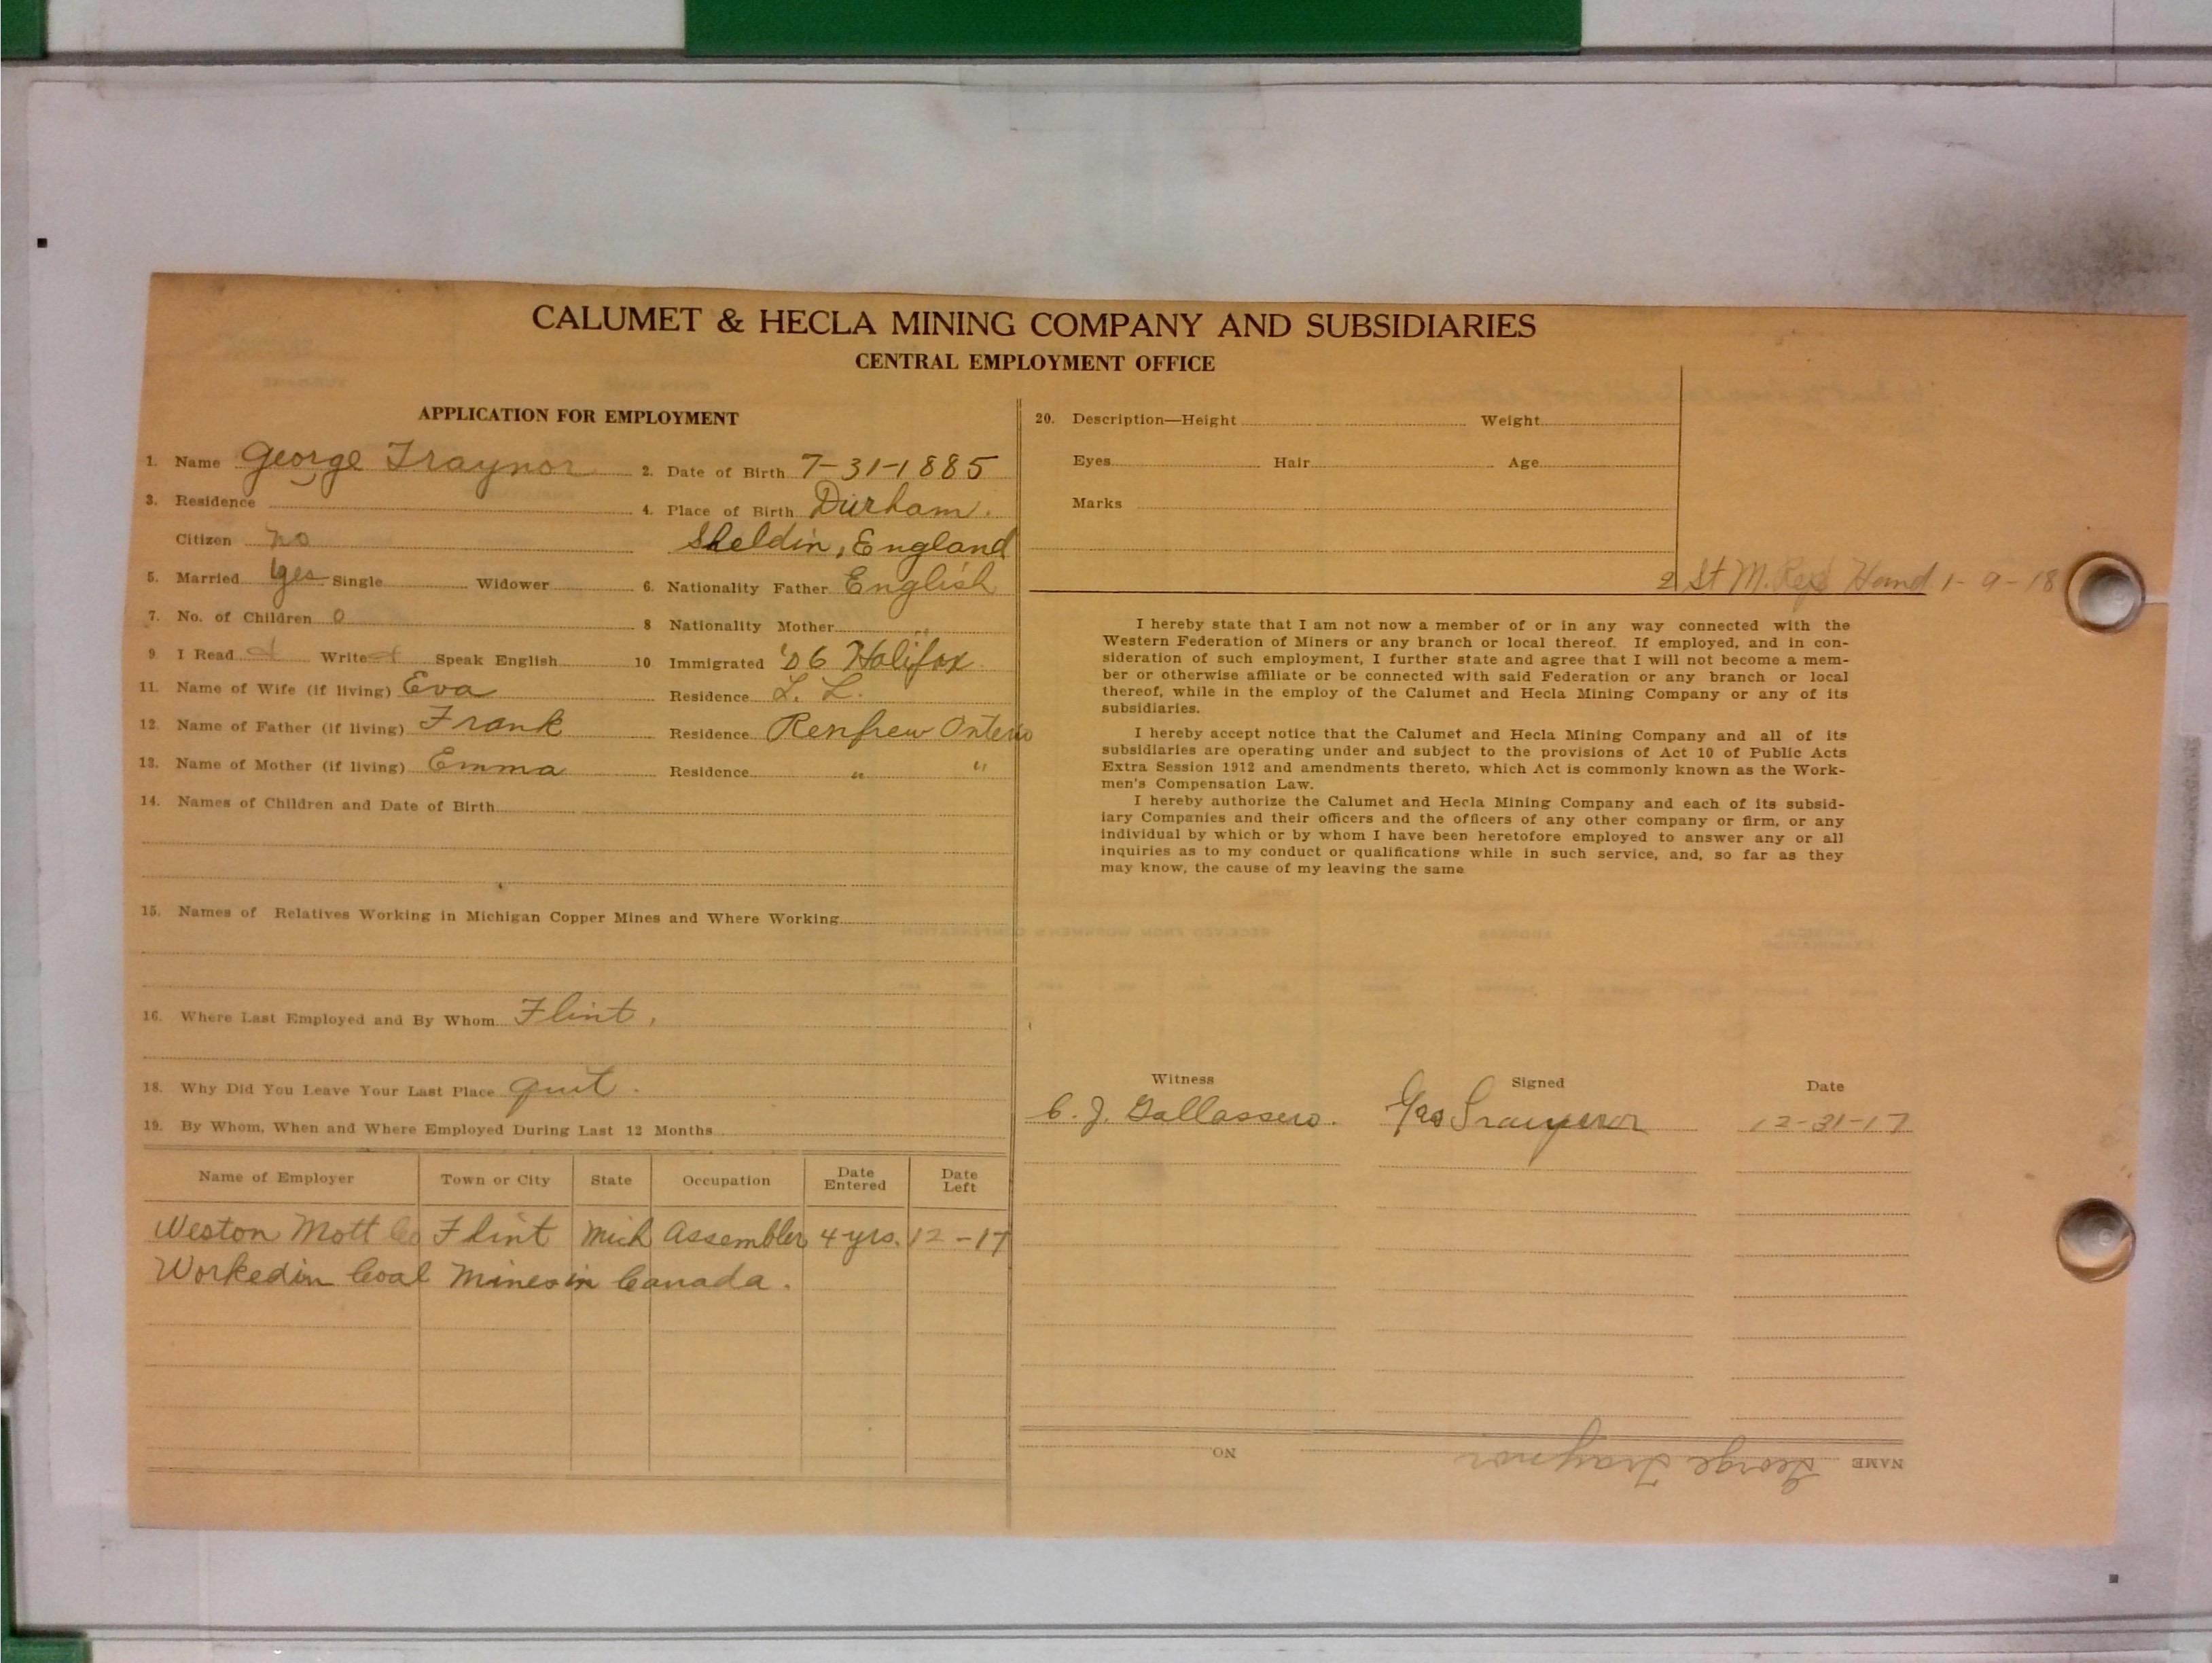 CALUMET & HECLA MINING COMPANY AND SUBSIDIARIES
CENTRAL EMPLOYMENT OFFICE
APPLICATION FOR EMPLOYMENT
1. Name George Traynor 2. Date of Birth 7-31-1885
3. Residence 4. Place of Birth Durham.
Citizen no Sheldin, England
5. Married yes Single Widower 6. Nationality Father English
7. No. of Children 0 8 Nationality Mother "
9. I Read Write Speak English 10 Immigrated '06 Halifax
11. Name of Wife (if living) Eva Residence L. L.
12. Name of Father (if living) Frank Residence Renfrew Onterio
13. Name of Mother (if living) Emma Residence " "
14. Names of Children and Date of Birth
15. Names of Relatives Working in Michigan Copper Mines and Where Working
16. Where Last Employed and By Whom Flint,
18. Why Did You Leave Your Last Place quit.
19. By Whom, When and Where Employed During Last 12 Months
Name of Employer Town or City State Occupation Date Entered Date Left
Weston Mott Co Flint Mich Assembler 4 yrs. 12-17
Worked in Coal Mines in Canada.
20. Description—Height Weight
Eyes Hair Age
Marks
2 St M. Hand 1-9-18
I hereby state that I am not now a member of or in any way connected with the
Western Federation of Miners or any branch or local thereof. If employed, and in con-
sideration of such employment, I further state and agree that I will not become a mem-
ber or otherwise affiliate or be connected with said Federation or any branch or local
thereof, while in the employ of the Calumet and Hecla Mining Company or any of its
subsidiaries.
I hereby accept notice that the Calumet and Hecla Mining Company and all of its
subsidiaries are operating under and subject to the provisions of Act 10 of Public Acts
Extra Session 1912 and amendments thereto, which Act is commonly known as the Work-
men's Compensation Law.
I hereby authorize the Calumet and Hecla Mining Company and each of its subsid-
iary Companies and their officers and the officers of any other company or firm, or any
individual by which or by whom I have been heretofore employed to answer any or all
inquiries as to my conduct or qualifications while in such service, and, so far as they
may know, the cause of my leaving the same
Witness Signed Date
C. J. Gallassero. Geo Traynor 12-31-17
NAME George Traynor NO